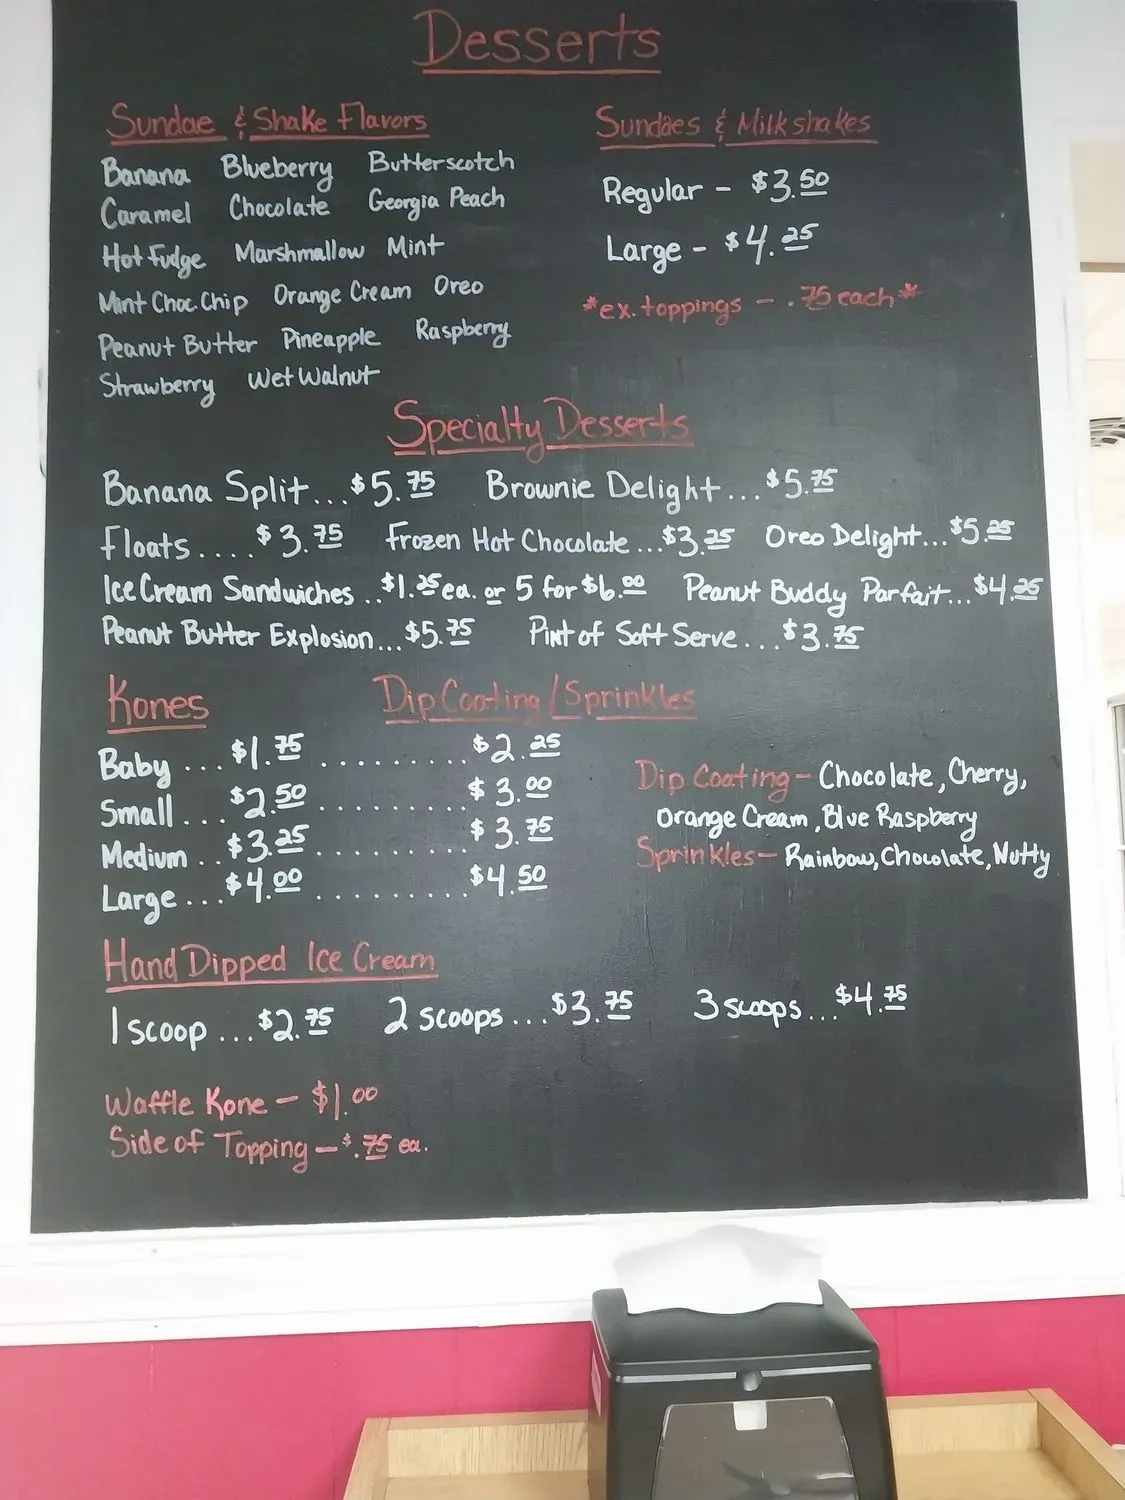 Desserts
Sundae & Shake Flavors
Banana Blueberry Butterscotch
Caramel Chocolate Georgia Peach
Hot Fudge Marshmallow Mint
Mint Choc. Chip Orange Cream Oreo
Peanut Butter Pineapple Raspberry
Strawberry Wet Walnut
Sundaes & Milkshakes
Regular - $3.50
Large - $4.25
*ex. toppings - .75 each*
Specialty Desserts
Banana Split... $5.75 Brownie Delight... $5.75
Floats.... $3.75 Frozen Hot Chocolate ...$3.25 Oreo Delight...$5.25
Ice Cream Sandwiches ..$1.25 ea. or 5 for $6.00 Peanut Buddy Parfait...$4.25
Peanut Butter Explosion...$5.75 Pint of Soft Serve....$3.75
Kones Dip Coating/Sprinkles
Baby ... $1.75 .......... $2.25
Small ... $2.50 .......... $3.00
Medium .. $3.25 .......... $3.75
Large ... $4.00 .......... $4.50
Dip Coating - Chocolate, Cherry,
Orange Cream, Blue Raspberry
Sprinkles - Rainbow, Chocolate, Nutty
Hand Dipped Ice Cream
1 scoop ... $2.75 2 scoops ... $3.75 3 scoops... $4.75
Waffle Kone - $1.00
Side of Topping - $.75 ea.